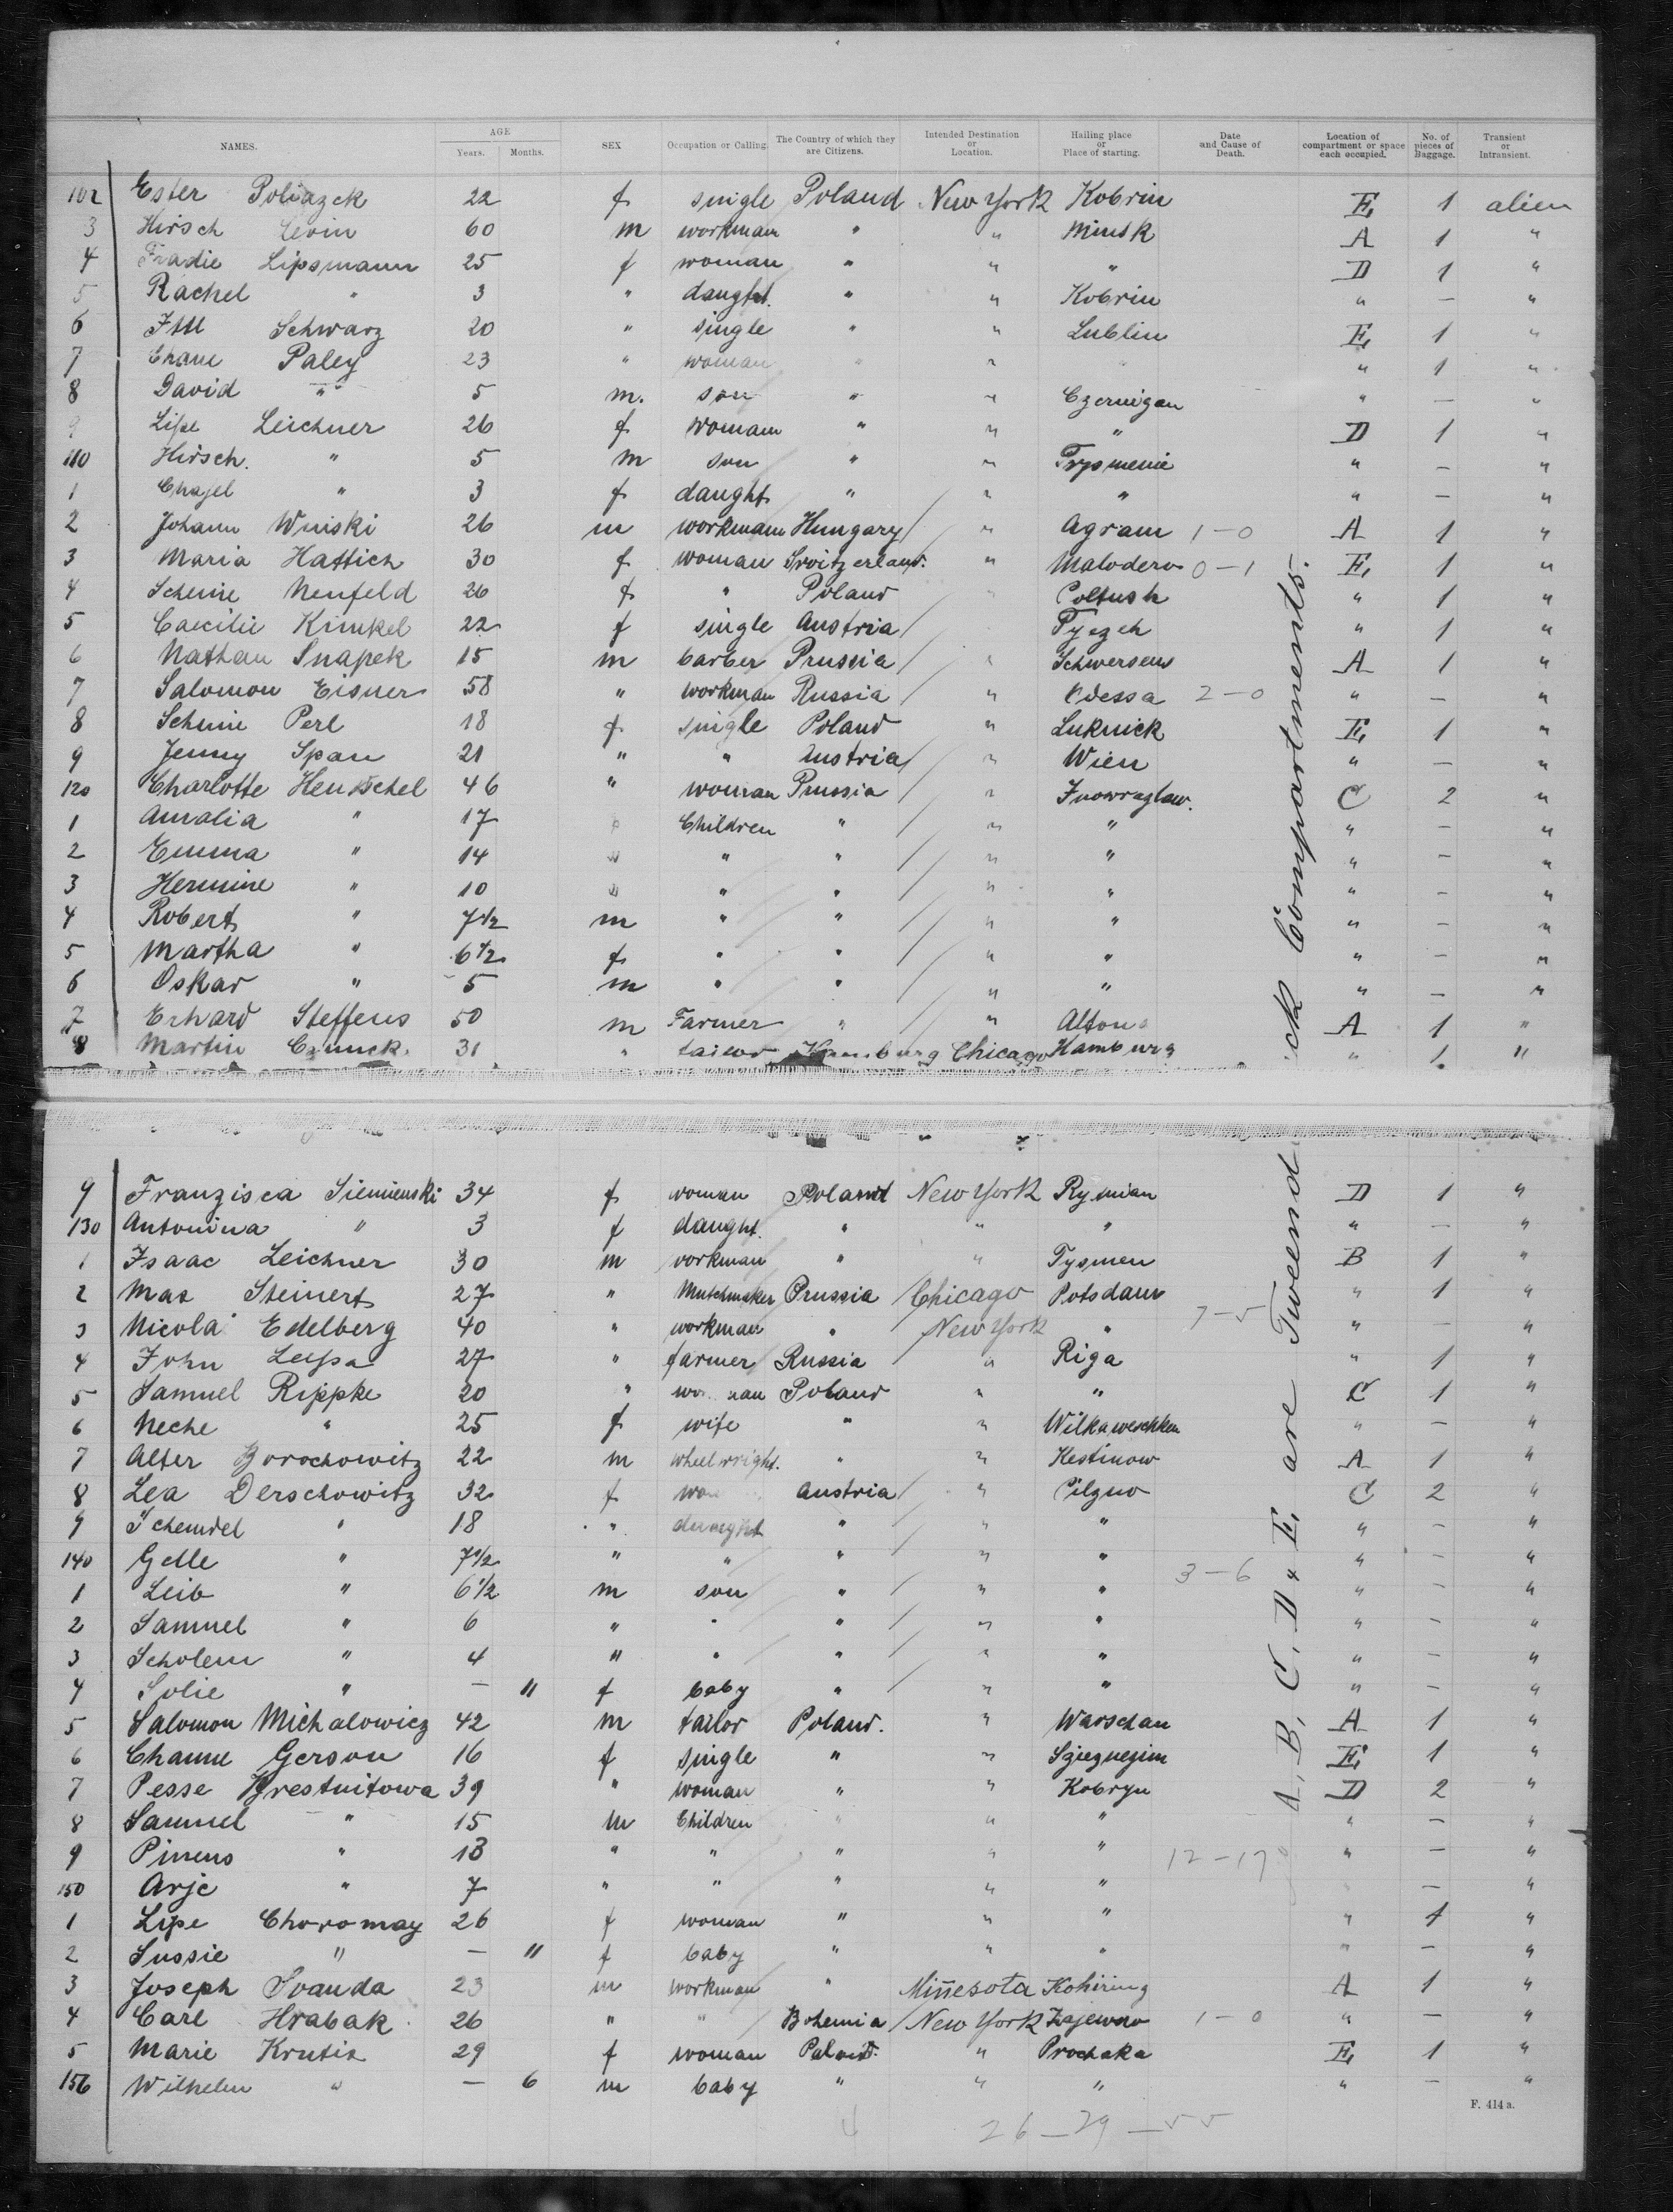 NAMES. AGE Years. Months. SEX Occupation or Calling. The Country of which they are Citizens. Intended Destination or Location. Hailing place or Place of starting. Date and Cause of Death. Location of compartment or space each occupied. No. of pieces of Baggage. Transient or Intransient.
102 Ester Poliazek 22 f single Poland New York Kobrin E, 1 alien
3 Hirsch Levin 60 m workman " " Minsk A 1 "
4 Fradie Lipsmann 25 f woman " " " D 1 "
5 Rachel " 3 " daught. " " Kobrin " — "
6 Schwarz 20 " single " " Lublin E, 1 "
7 Chane Paley 23 " woman " " " " 1 "
8 David " 5 m. son " " Czernigan " — "
9 Lipe Leichner 26 f woman " " " D 1 "
110 Hirsch. " 5 m son " " " — "
1 Chajel " 3 f daught " " " " — "
2 Johann Winiski 26 m workman Hungary " Agram 1 — 0 A 1 "
3 Maria Hattich 30 f woman Switzerland. " Malodero 0 — 1 E, 1 "
4 Scheine Neufeld 26 f " Poland " Poltush " 1 "
5 Caecilie Kimkel 22 f single Austria " 1 "
6 Nathan Snapek 15 m barber Prussia " Schwersens A 1 "
7 Salomon Eisner 58 " workman Russia " Odessa 2 — 0 " — "
8 Scheine Perl 18 f single Poland " Luknick E, 1 "
9 Jenny Span 21 " " Austria " Wien " — "
120 Charlotte Hentschel 46 " woman Prussia " Inowraglaw. C 2 "
1 Amalia " 17 " Children " " " " — "
2 Emma " 14 " " " " " " — "
3 Hermine " 10 " " " " " " — "
4 Robert " 7 1/2 m " " " " " — "
5 Martha " 6 1/2 f " " " " " — "
6 Oskar " 5 m " " " " " — "
7 Erhard Steffens 50 m Farmer " " Altona A 1 "
8 Martin 31 " tailor Hamburg Chicago Hamburg " 1. "
9 Franzisca Siemienski 34 f woman Poland New York Rymian D 1 "
130 Antonina " 3 f daught. " " " " — "
1 Isaac Leichner 30 m workman " " Tysmen B 1 "
2 Max Steinert 27 " Prussia Chicago Potsdam " 1 "
3 Nicola Edelberg 40 " workman " New York " 7 — 5 " — "
4 John Leysa 27 " farmer Russia " Riga " 1 "
5 Samuel Rippke 20 " Poland " " C 1 "
6 Neche " 25 f wife " " Wilkaweschken " — "
7 Alter Borochowitz 22 m wheelwright. " " Kestinow A 1 "
8 Lea Derschowitz 32 f Austria " Pilzno C 2 "
9 Schendel " 18 " daught " " " " — "
140 Gelle " 7 1/2 " " " " " 3 — 6 " — "
1 Leib " 6 1/2 m son " " " " — "
2 Samuel " 6 " " " " " " — "
3 Scholem " 4 " " " " " " — "
4 Solie " — 11 f baby " " " " — "
5 Salomon Michalowicz 42 m tailor Poland. " Warschau A 1 "
6 Channe Gerson 16 f single " " E, 1 "
7 Pesse Brestnitowa 39 " woman " " Kobryn D 2 "
8 Samuel " 15 m Children " " " " — "
9 Pineus " 13 " " " " " 12 — 17 " — "
150 Arje " 7 " " " " " — "
1 Lipe Choromay 26 f woman " " " " 1 "
2 Sussie " — 11 f baby " " " " — "
3 Joseph Svanda 23 m workman " Minnesota Kohiring A 1 "
4 Carl Hrabak 26 " " Bohemia New York 1 — 0 " — "
5 Marie Krutis 29 f woman Poland. " Prochaka E, 1 "
156 Wilhelm " — 6 m baby " " " " — "
A, B, C, D & E, are Tweendeck Compartments.
F. 414 a.
4 26 — 29 — 55